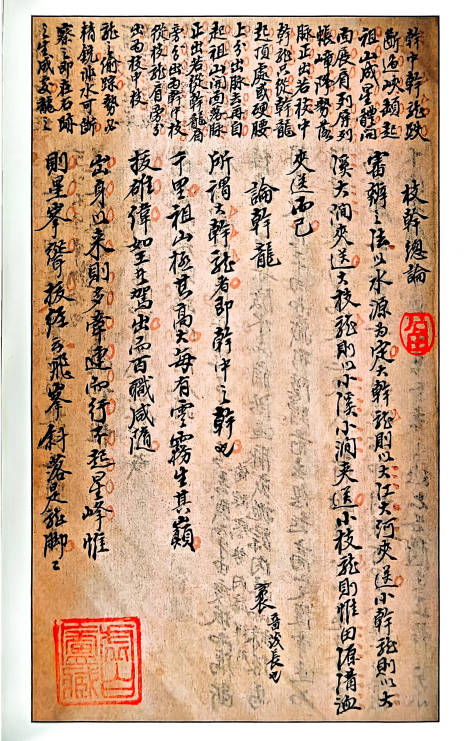 幹中幹龍跌
斷過峽頓起
祖山成星體開
面展肩列屏列
帳嶂降勢落
脉正出若枝中
幹龍只從幹龍
起頂處或硬腰
上分出脉去再自
起祖山開面落脉
正出若從幹龍肩
旁分出為幹中枝
從枝龍肩旁分
出為枝中枝
龍之勢必
精銳非水可斷
察之即在石
之生成龍之
枝幹總論
審辨之法以水源為定大幹龍則以大江大河夾送小幹龍則以大
溪大澗夾送大枝龍則以小溪小澗夾送小枝龍則惟田源溝洫
夾送而已
論幹龍
袤 音茂長也
所謂大幹龍者即幹中之幹也
千里祖山極其高大每有雲霧生其巔
拔雄偉如王者駕出而百職咸隨
出身以來則多連而行不起星峰惟
則星峯聳拔經云飛峯斜落是龍脚